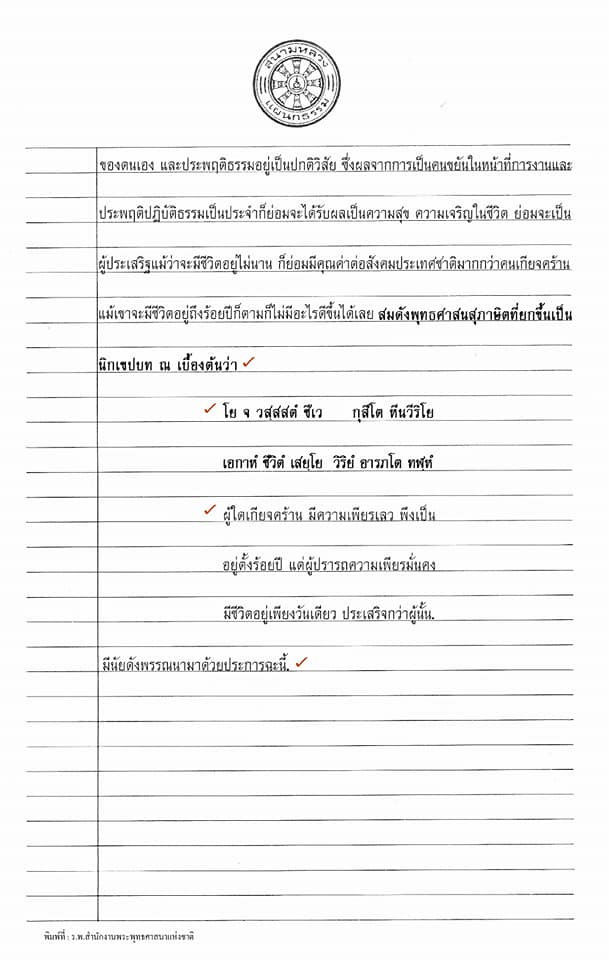 สนามหลวง
แผนกธรรม
ของตนเอง และประพฤติธรรมอยู่เป็นปกติวิสัย ซึ่งผลจากการเป็นคนขยันในหน้าที่การงานและ
ประพฤติปฏิบัติธรรมเป็นประจำก็ย่อมจะได้รับผลเป็นความสุข ความเจริญในชีวิต ย่อมจะเป็น
ผู้ประเสริฐแม้ว่าจะมีชีวิตอยู่ไม่นาน ก็ย่อมมีคุณค่าต่อสังคมประเทศชาติมากกว่าคนเกียจคร้าน
แม้เขาจะมีชีวิตอยู่ถึงร้อยปีก็ตามก็ไม่มีอะไรดีขึ้นได้เลย สมดังพุทธศาสนสุภาษิตที่ยกขึ้นเป็น
นิกเขปบท ณ เบื้องต้นว่า ✓
✓ โย จ วสฺสสตํ ชีเว กุสีโต หีนวีริโย
เอกาหํ ชีวิตํ เสยฺโย วิริยํ อารภโต ทฬฺหํ
✓ ผู้ใดเกียจคร้าน มีความเพียรเลว พึงเป็น
อยู่ตั้งร้อยปี แต่ผู้ปรารถความเพียรมั่นคง
มีชีวิตอยู่เพียงวันเดียว ประเสริฐกว่าผู้นั้น.
มีนัยดังพรรณนามาด้วยประการฉะนี้. ✓
พิมพ์ที่ : ร.พ.สำนักงานพระพุทธศาสนาแห่งชาติ